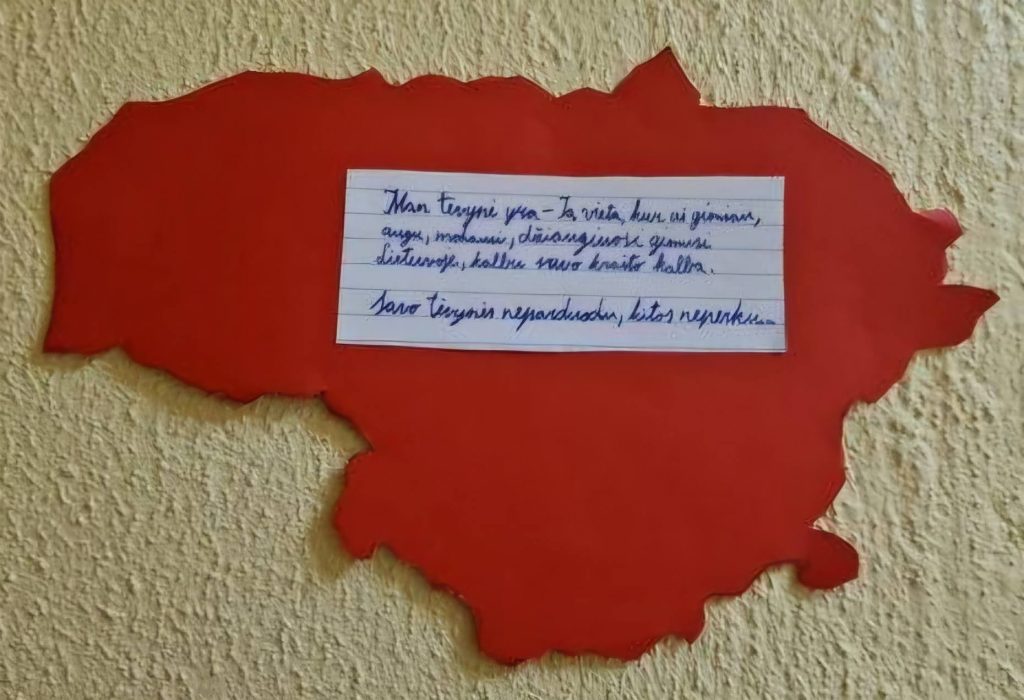 Man tėvynė yra – Ta vieta, kur aš gimiau,
augu, mokausi, džiaugiuosi gimusi
Lietuvoje, kalbu savo krašto kalba.
Savo tėvynės neparduodu, kitos neperku...